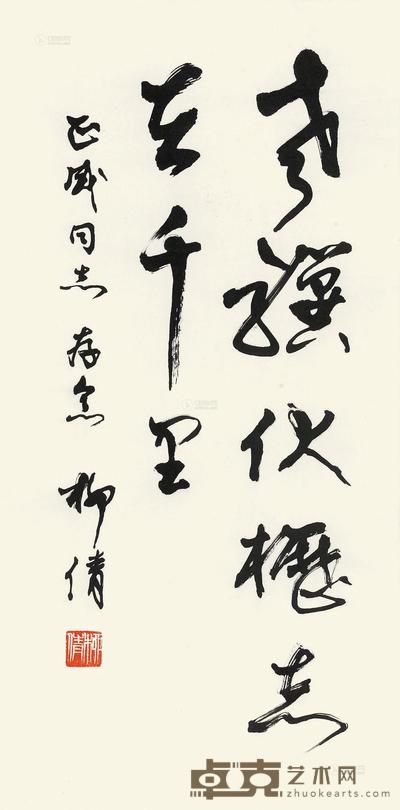 老骥伏枥志
在千里
正成同志 存念 柳倩
柳倩
卓克艺术网
zhuokearts.com